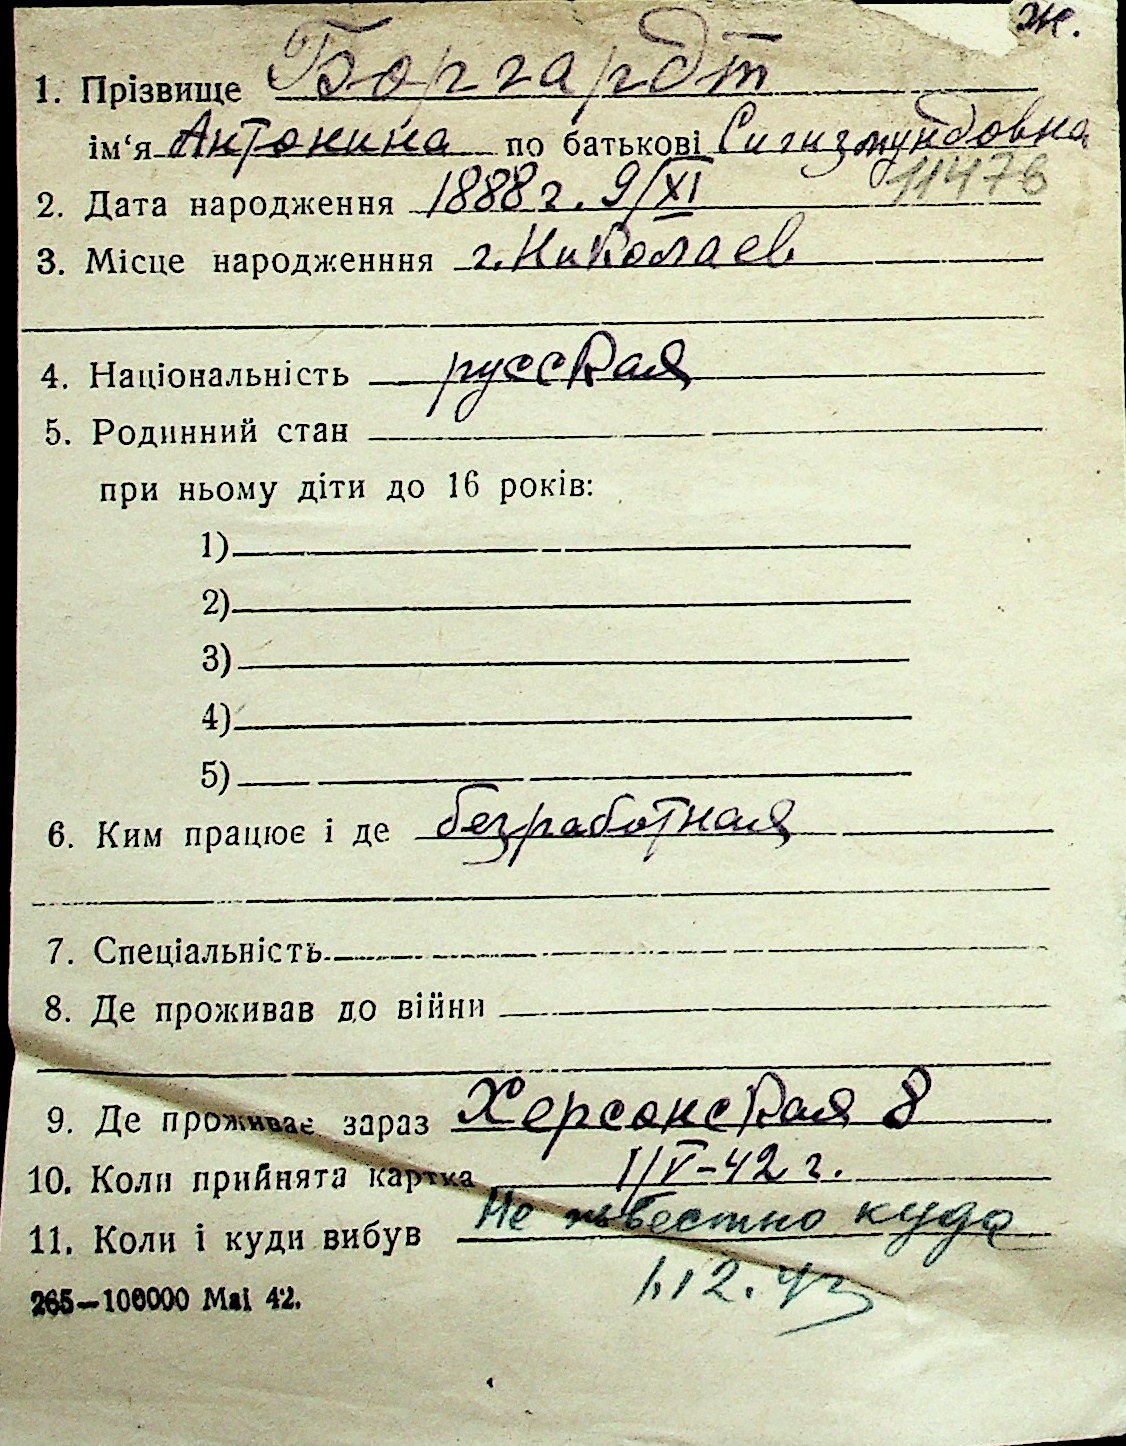 ж.
1. Прізвище Боргардт
ім‘я Антонина по батькові Сигизмундовна
11476
2. Дата народження 1888 г. 9/XI
3. Місце народженння г. Николаев
4. Національність русская
5. Родинний стан
при ньому діти до 16 років:
1)
2)
3)
4)
5)
6. Ким працює і де безработная
7. Спеціальність
8. Де проживав до війни
9. Де проживає зараз Херсонская 8
10. Коли прийнята картка 1/V-42 г.
11. Коли і куди вибув Не известно куда
1.12.43
265—100000 Mai 42.